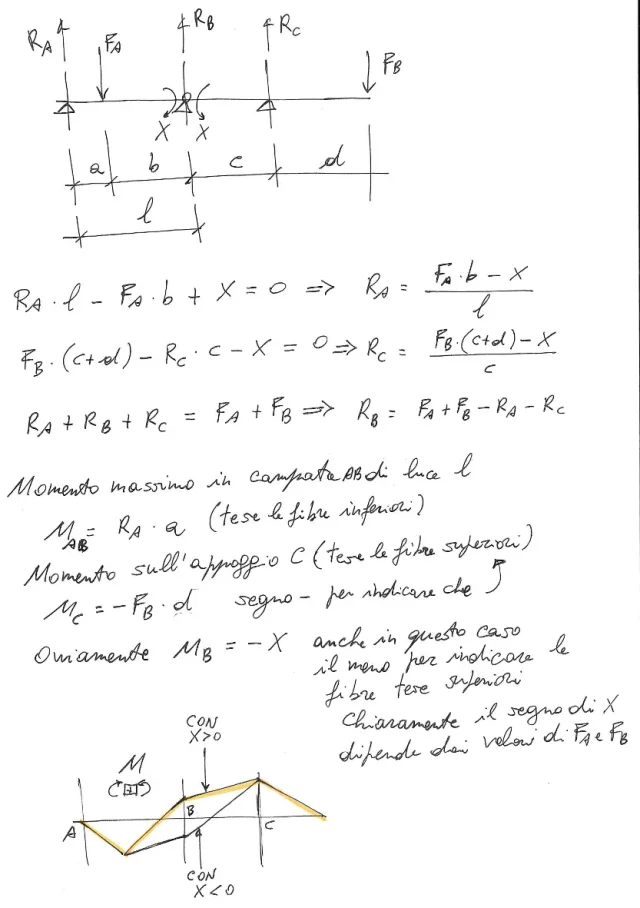 R_A F_A R_B R_C F_B
X X
a b c d
l
R_A · l - F_A · b + X = 0 => R_A = (F_A · b - X) / l
F_B · (c+d) - R_C · c - X = 0 => R_C = (F_B · (c+d) - X) / c
R_A + R_B + R_C = F_A + F_B => R_B = F_A + F_B - R_A - R_C
Momento massimo in campata AB di luce l
M_AB = R_A · a (tese le fibre inferiori)
Momento sull'appoggio C (tese le fibre superiori)
M_C = - F_B · d segno - per indicare che
Ovviamente M_B = - X anche in questo caso
il meno per indicare le
fibre tese superiori
Chiaramente il segno di X
dipende dai valori di F_A e F_B
CON
X>0
M
+
A B C
CON
X<0